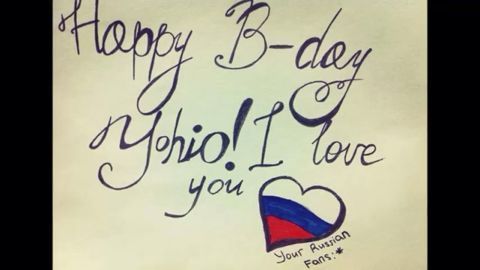 Happy B-day
Yohio! I love
you
Your Russian
Fans:*